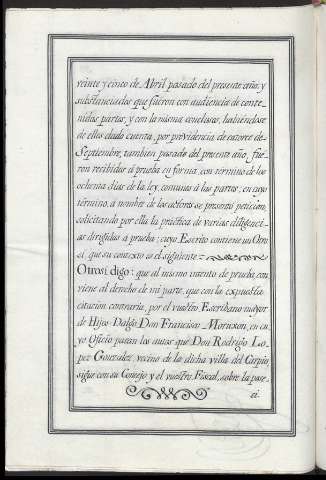 veinte y cinco de Abril pasado del presente año, y
substanciados que fueron con audiencia de conte-
nidas partes, y con la misma conclusos, habiendose
de ellos dado cuenta, por providencia de catorce de
Septiembre, tambien pasado del presente año, fue-
ron recibidos á prueba en forma con termino de los
ochenta dias de la ley, comunes á las partes, en cuyo
término, á nombre de los actores se presentó peticion,
solicitando por ella la práctica de varias diligencias
dirigidas á prueba; cuyo Escrito contiene un Otro
si, que su contexto es el siguiente
Otrosí digo: que al mismo intento de prueba, con-
viene al derecho de mi parte, que con la expuesta
citacion contraria, por el vuestro Escribano mayor
de Hijos-Dalgo, Don Francisco Moruxon, en cu-
yo Oficio pasan los autos que Don Rodrigo Lo-
pez Gonzalez, vecino de la dicha villa del Carpio,
sigue con su Consejo y el vuestro Fiscal, sobre la pose-
si